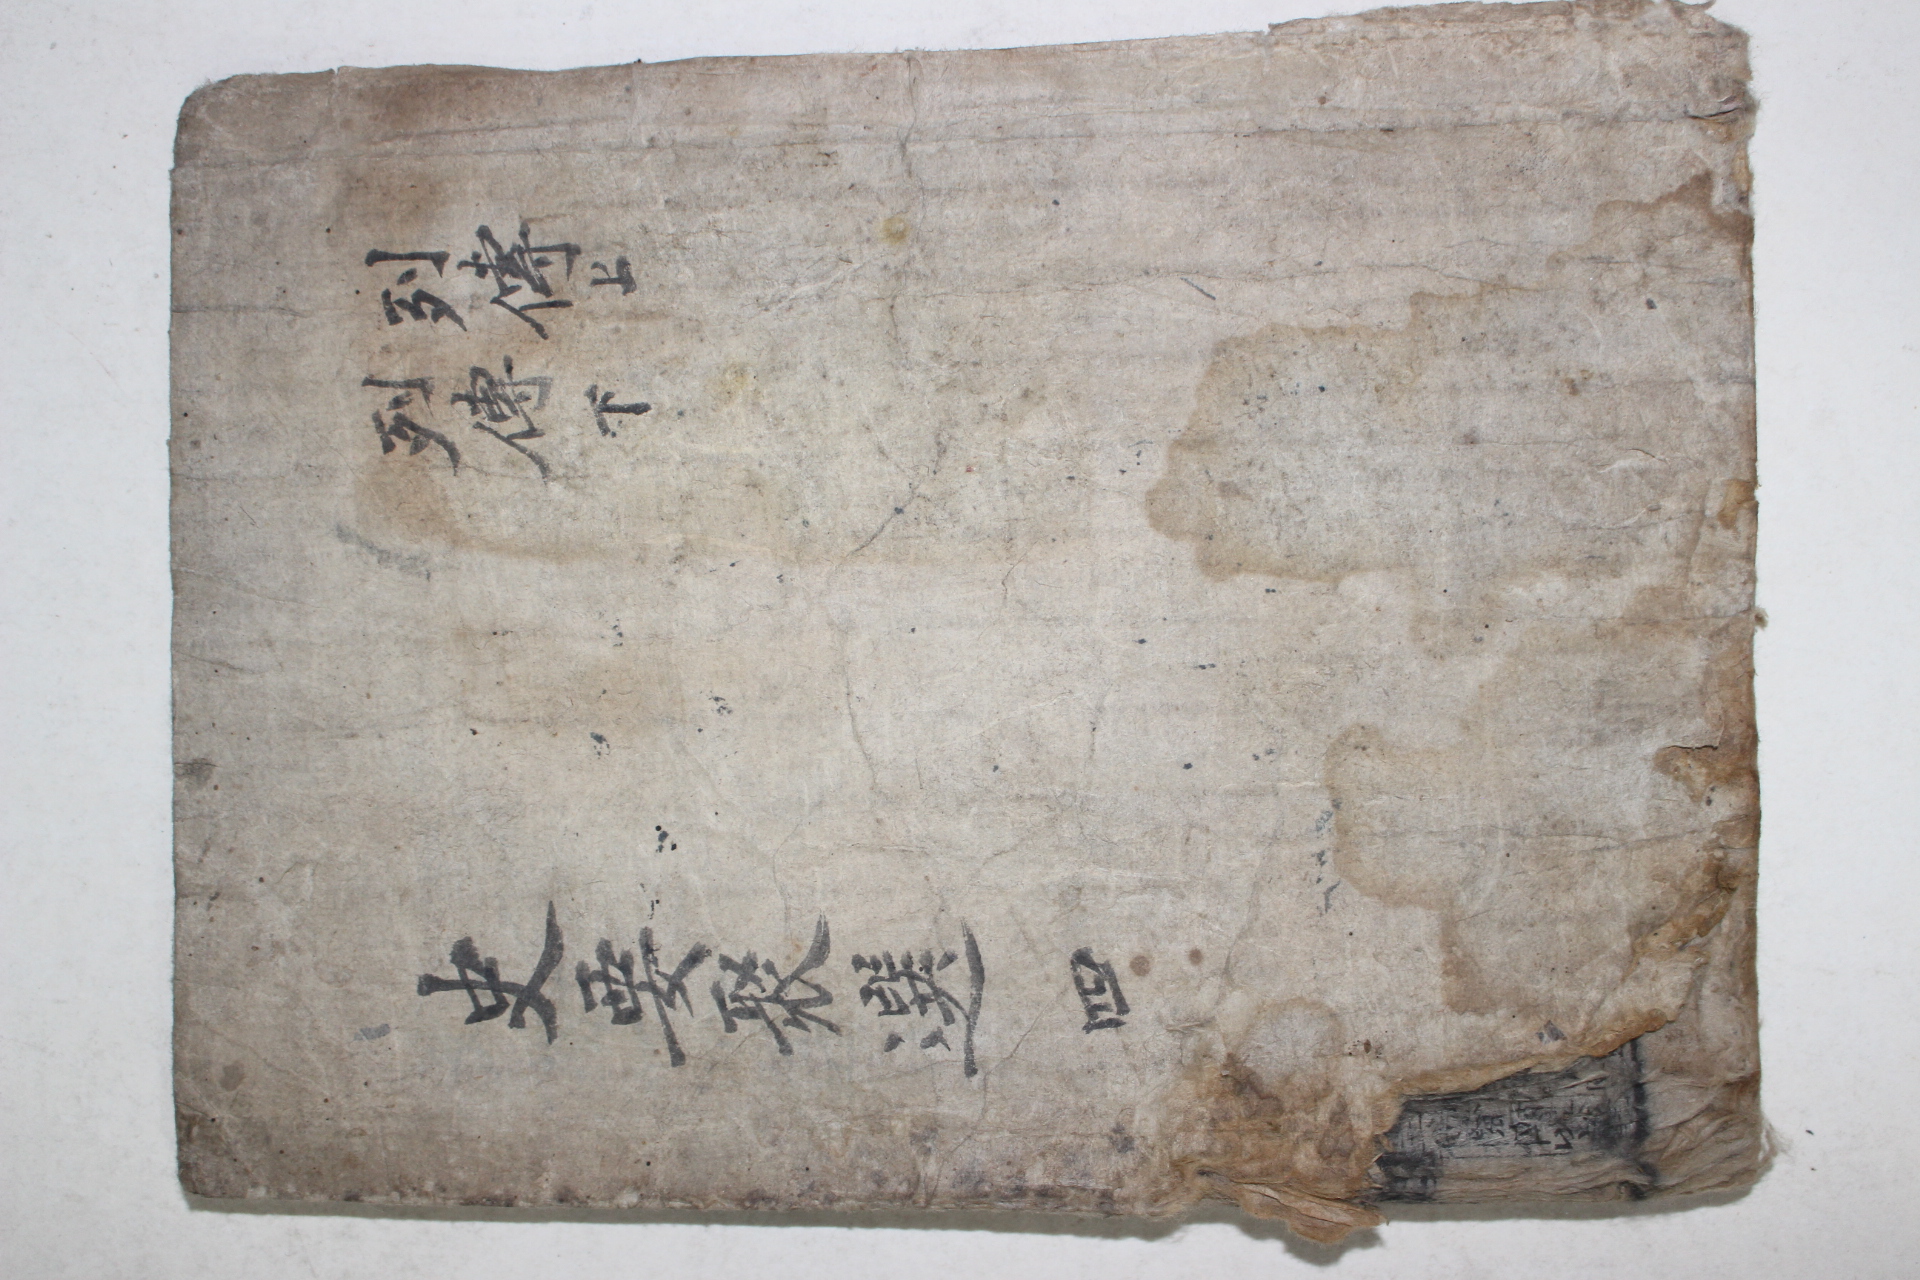 列傳上
列傳下
史要聚選 四